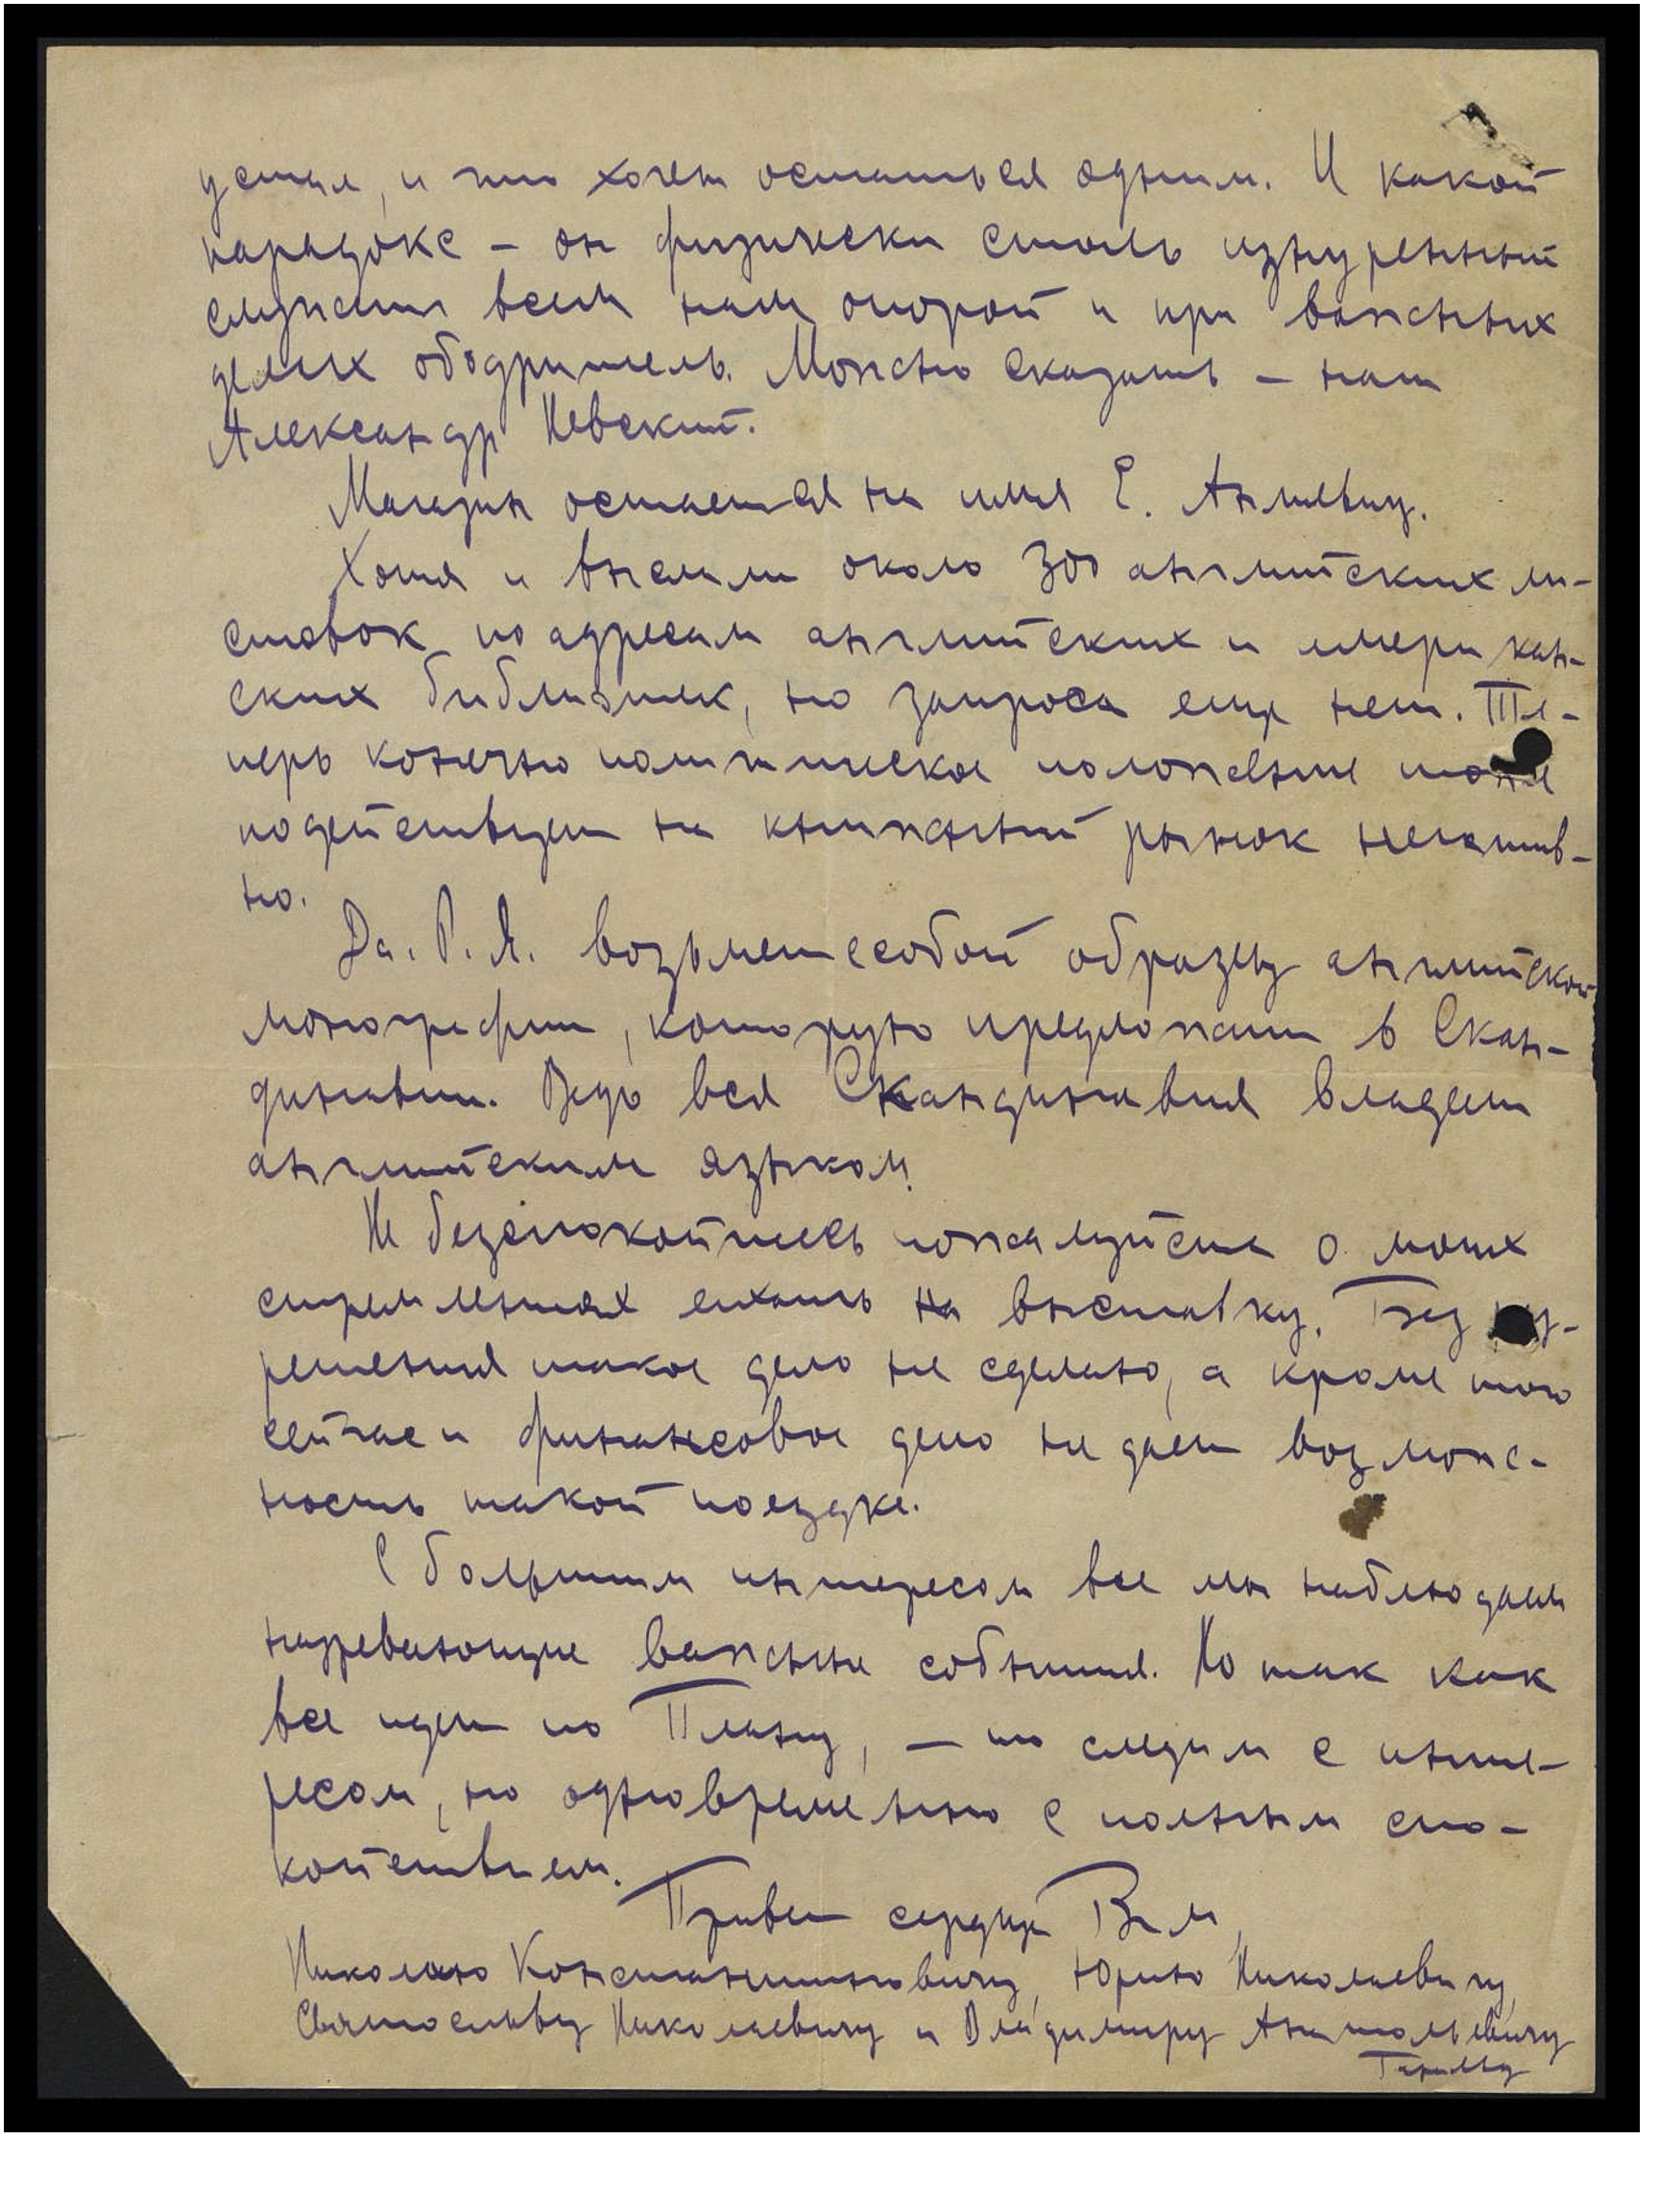 устал, и что хочет остаться одним. И какой
парадокс – он физически столь изнуренный
служит всем нам опорой и при важных
делах ободритель. Можно сказать – наш
Александр Невский.
Магазин остается на имя Е.
Хотя и выслали около 300 английских ли-
стовок по адресам английских и американ-
ских библиотек, но запроса еще нет. Те-
перь конечно политическое положение тоже
подействует на книжный рынок негатив-
но.
Да. Р. Я. возьмет с собой образец английской
монографии, которую предложит в Скан-
динавии. Ведь вся Скандинавия владеет
английским языком.
Не безспокойтесь пожалуйста о моих
стремлениях ехать на выставку. Без
решения такое дело не сделаю, а кроме того
сейчас и финансовое дело не дает возмож-
ность такой поездке.
С большим интересом все мы наблюдаем
назревающие важные события. Но так как
все идет по Плану, – то следим с инте-
ресом, но одновременно с полным спо-
койствием.
Привет сердца Вам,
Николаю Константиновичу, Юрию Николаевичу,
Святославу Николаевичу и Владимиру Анатольевичу